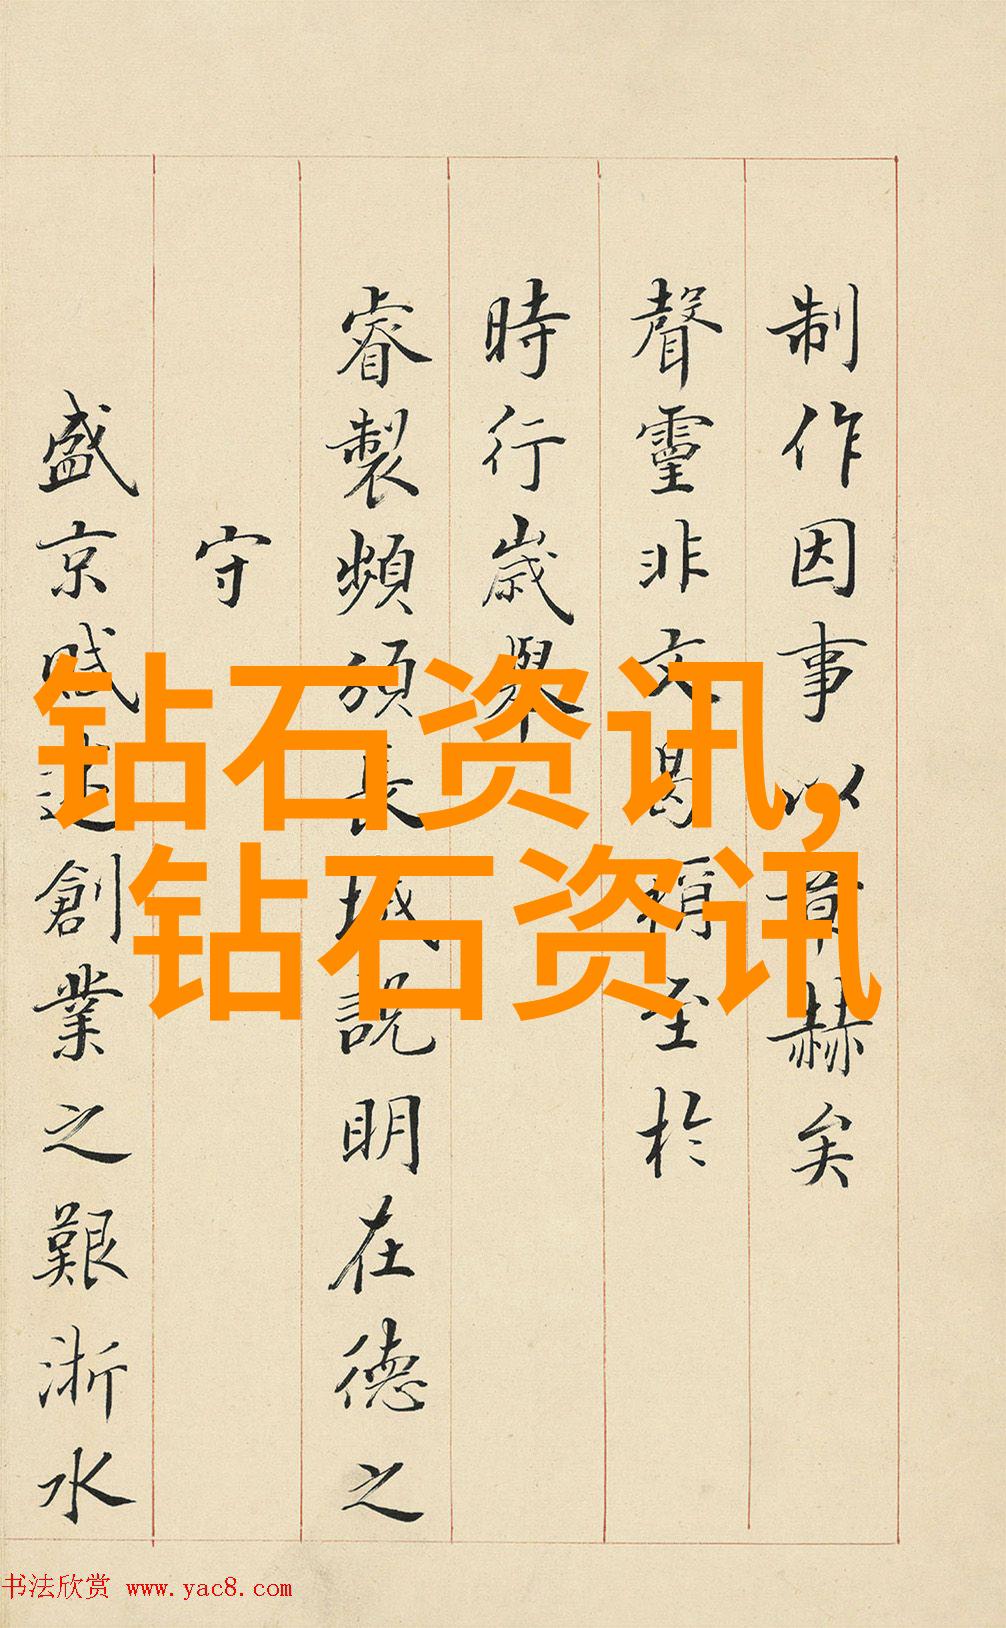 制作因事以章赫矣
聲靈非文曷稱至於
時行歲舉
睿製頻頒長城説明在德之
守
盛京賦述創業之艱浙水
钻石资讯,
钻石资讯
书法欣赏 www.yac8.com